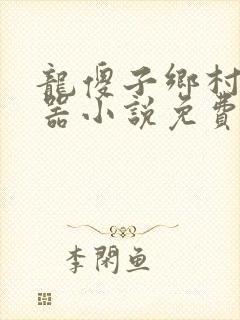 龍傻子鄉村
器小說免費
李閑魚